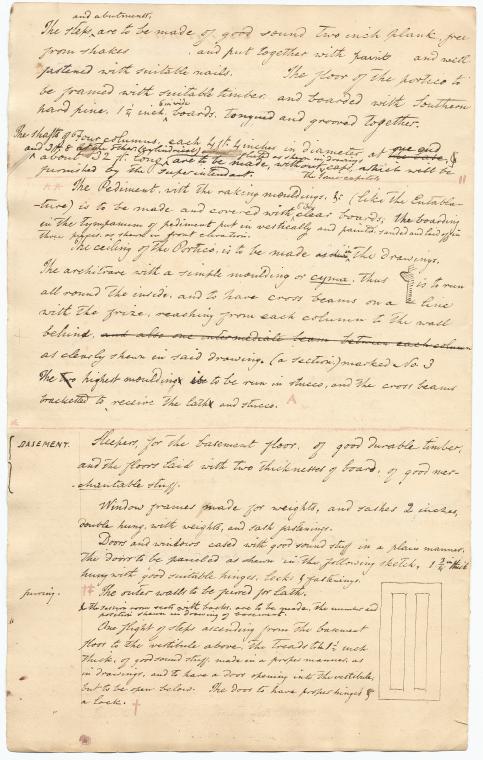 and abutments,
The steps, are to be made of good sound two inch plank, free
from shakes and put together with paint and well
fastened with suitable nails. The floor of the portico to
be framed with suitable timber, and boarded with Southern
6 in wide
hard pine, 1 1/4 inch boards. Tongued and grooved together.
The shafts of four columns, each 4 ft 4 inches in diameter, at one end
and 3 ft 8 at the other (cylindrical) as shown in drawings
about 32 ft. long are to be made, without caps, which will be
furnished by the Superintendent. the four capitals
The Pediment, with the raking mouldings, &c (like the Entabla-
ture) is to be made and covered with clear boards; the boarding
in the tympanum of pediment put in vertically and painted, sanded and laid off in
three pieces, as shown in front elevation.
The ceiling of the Portico, is to be made as in the drawings.
The architrave with a simple moulding or cyma, thus is to run
all round the inside, and to have cross beams on a line
with the frize, reaching from each column to the wall
behind, and also one intermediate beam between each column
as clearly shown in said drawing, (a section) marked No. 3
The two highest mouldings to be run in stucco, and the cross beams
bracketted to receive the lath and stucco. A
BASEMENT. Sleepers, for the basement floor, of good durable timber,
and the floors laid with two thicknesses of board, of good mer-
chantable stuff.
Window frames made for weights, and sashes 2 inches,
double hung, with weights, and sash fastenings.
Doors and windows cased with good sound stuff in a plain manner,
the doors to be paneled as shown in the following sketch, 1 3/4 in thick
hung with good suitable hinges, locks & fastenings.
furring. The outer walls to be fured for lath.
& the session room seats with backs, are to be made, the number and
position shewn in drawing of basement.
One flight of steps ascending from the basement
floor to the vestibule above, the treads to be 1 1/2 inch
thick, of good sound stuff, made in a proper manner, as
in drawings, and to have a door opening into the vestibule,
but to be open below. The door to have proper hinges &
a lock. †